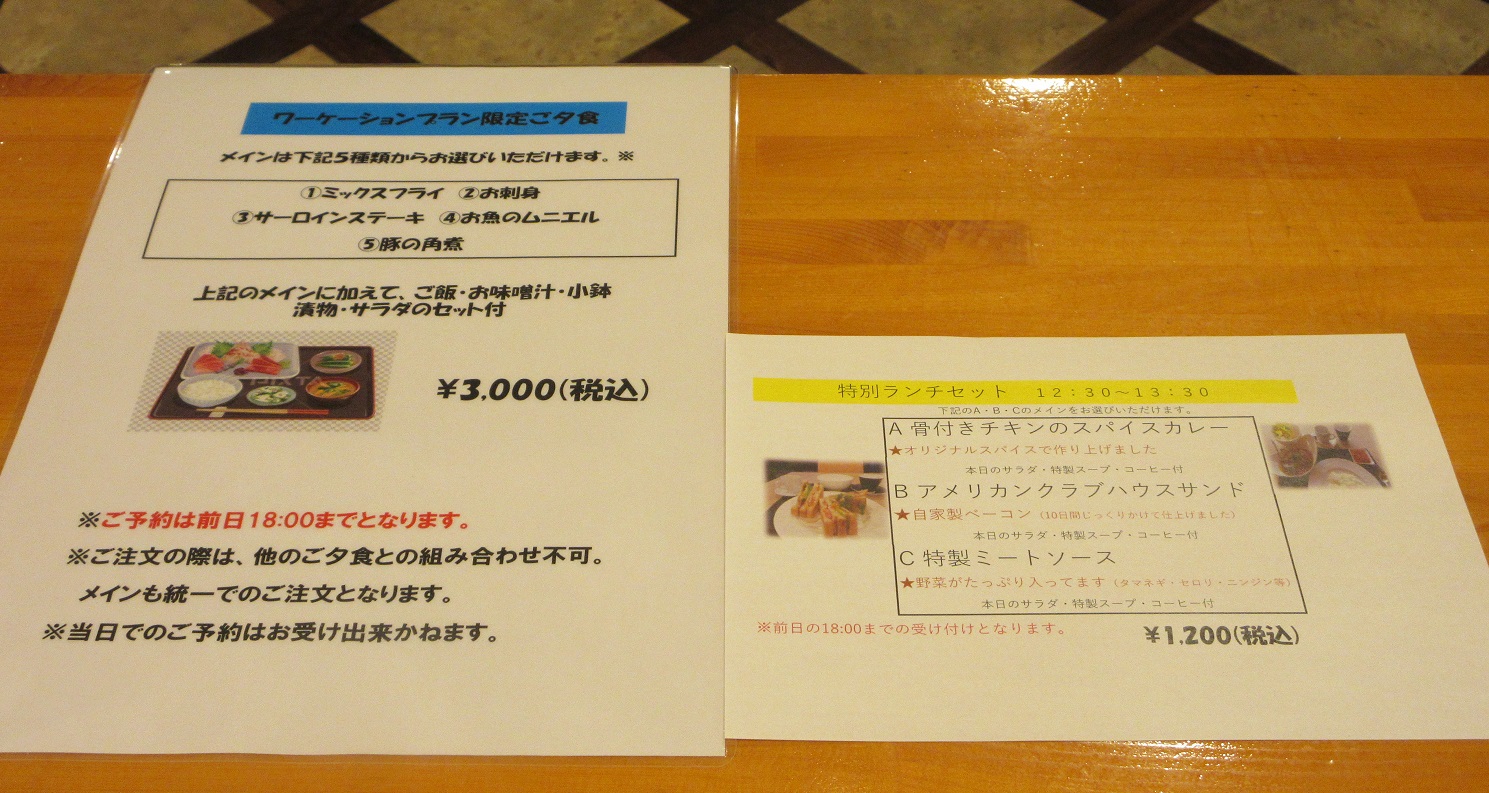 ワーケーションプラン限定ご夕食
メインは下記5種類からお選びいただけます。※
①ミックスフライ ②お刺身
③サーロインステーキ ④お魚のムニエル
⑤豚の角煮
上記のメインに加えて、ご飯・お味噌汁・小鉢
漬物・サラダのセット付
¥3,000(税込)
※ご予約は前日18:00までとなります。
※ご注文の際は、他のご夕食との組み合わせ不可。
メインも統一でのご注文となります。
※当日でのご予約はお受け出来かねます。
特別ランチセット 12:30~13:30
下記のA・B・Cのメインをお選びいただけます。
A 骨付きチキンのスパイスカレー
★オリジナルスパイスで作り上げました
本日のサラダ・特製スープ・コーヒー付
B アメリカンクラブハウスサンド
★自家製ベーコン（10日間じっくりかけて仕上げました）
本日のサラダ・特製スープ・コーヒー付
C 特製ミートソース
★野菜がたっぷり入ってます（タマネギ・セロリ・ニンジン等）
本日のサラダ・特製スープ・コーヒー付
※前日の18:00までの受け付けとなります。
¥1,200(税込)